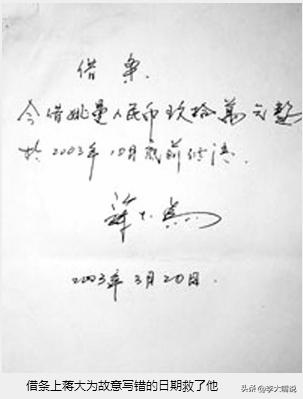 借条
今借姚曼人民币玖拾萬元整
于2003年10月底前付清.
蒋大为
2003年3月20日.
借条上蒋大为故意写错的日期救了他
头条@李大嘴说